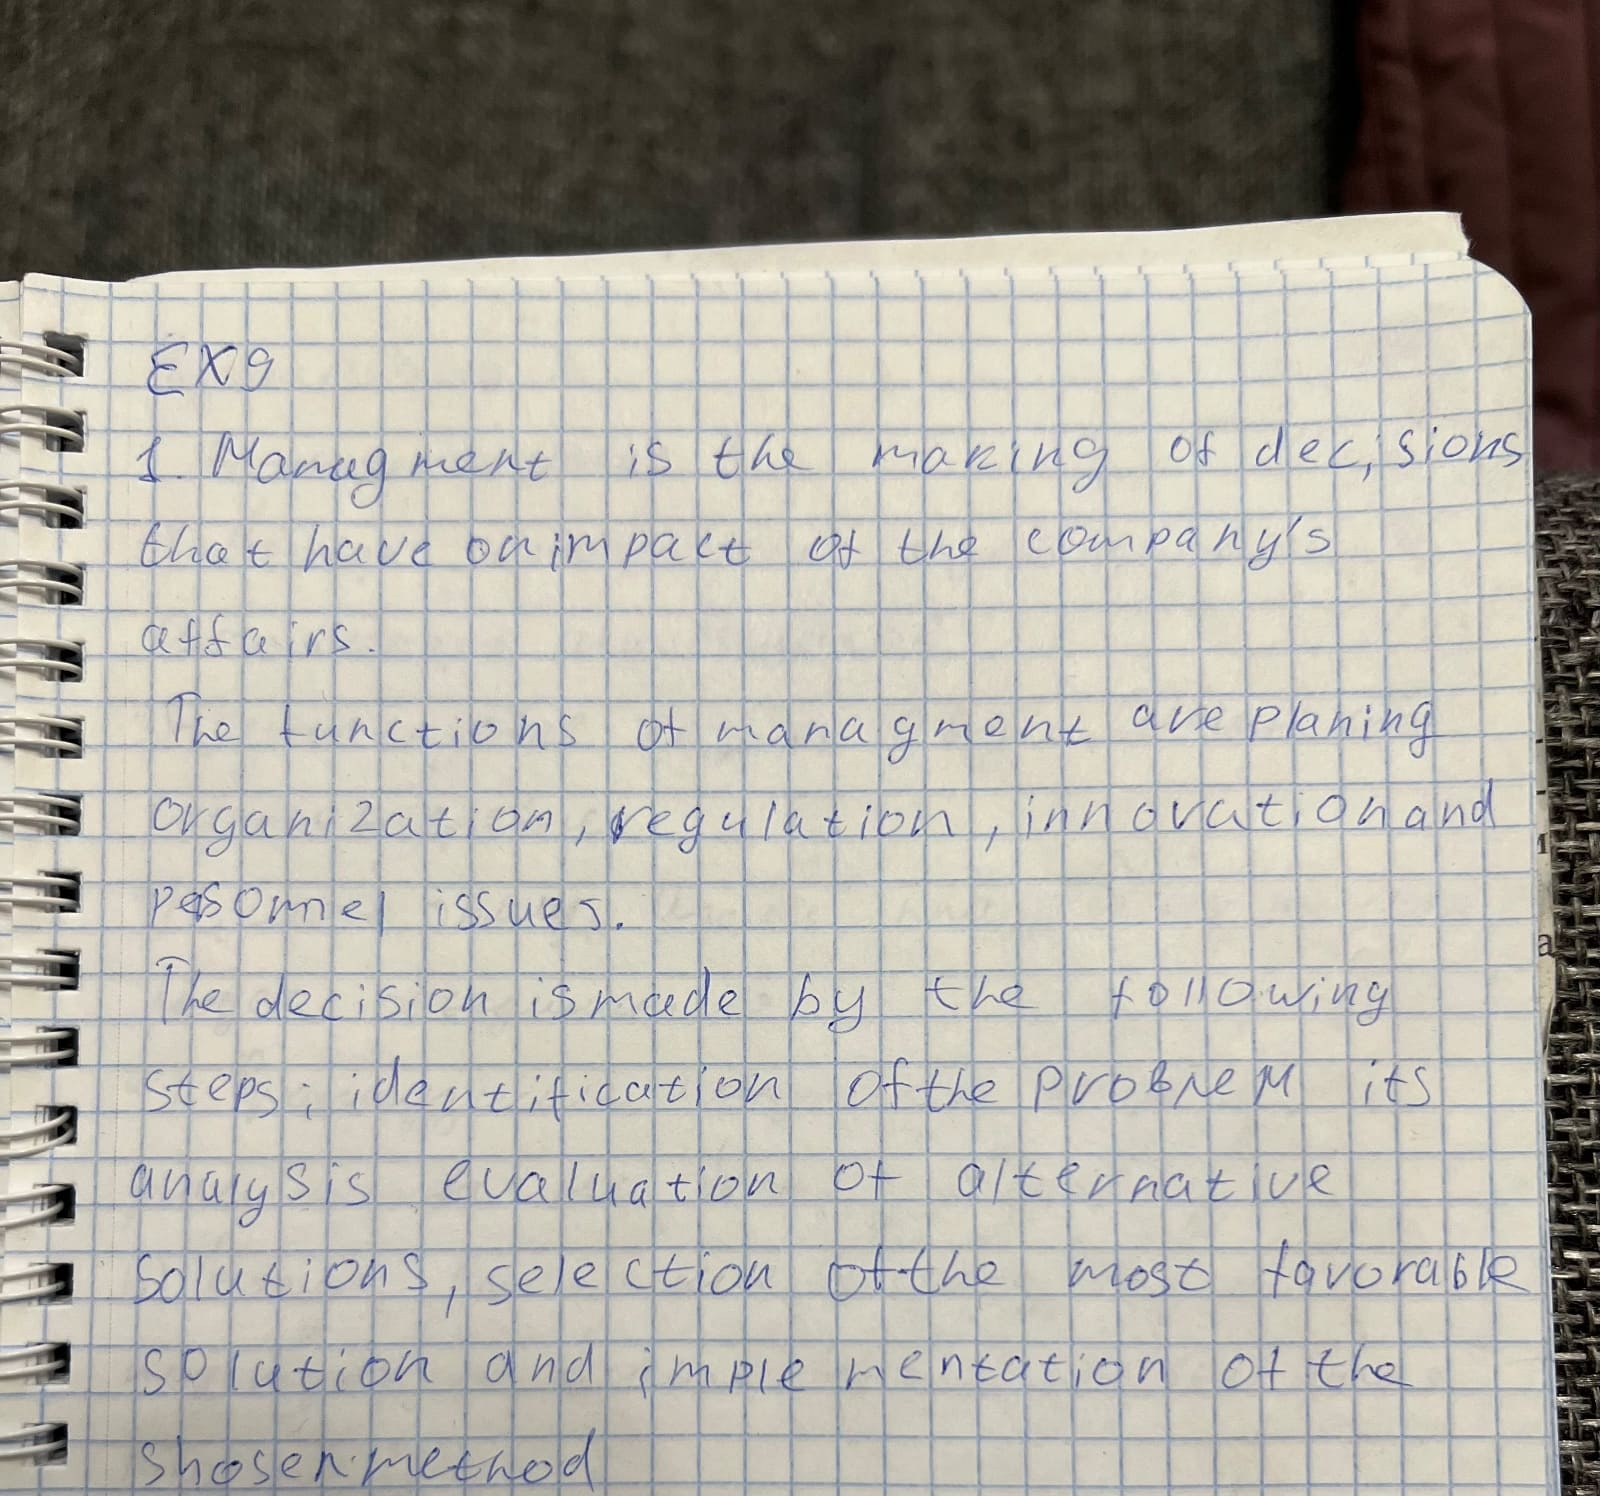 EX9
1. Managment is the making of decisions
that have on impact of the company's
affairs.
The functions of managment are planing
organization, regulation, innovation and
pesonnel issues.
The decision is made by the following
steps: identification of the problem its
analysis evaluation of alternative
solutions, selection of the most favorable
solution and implementation of the
shosen method